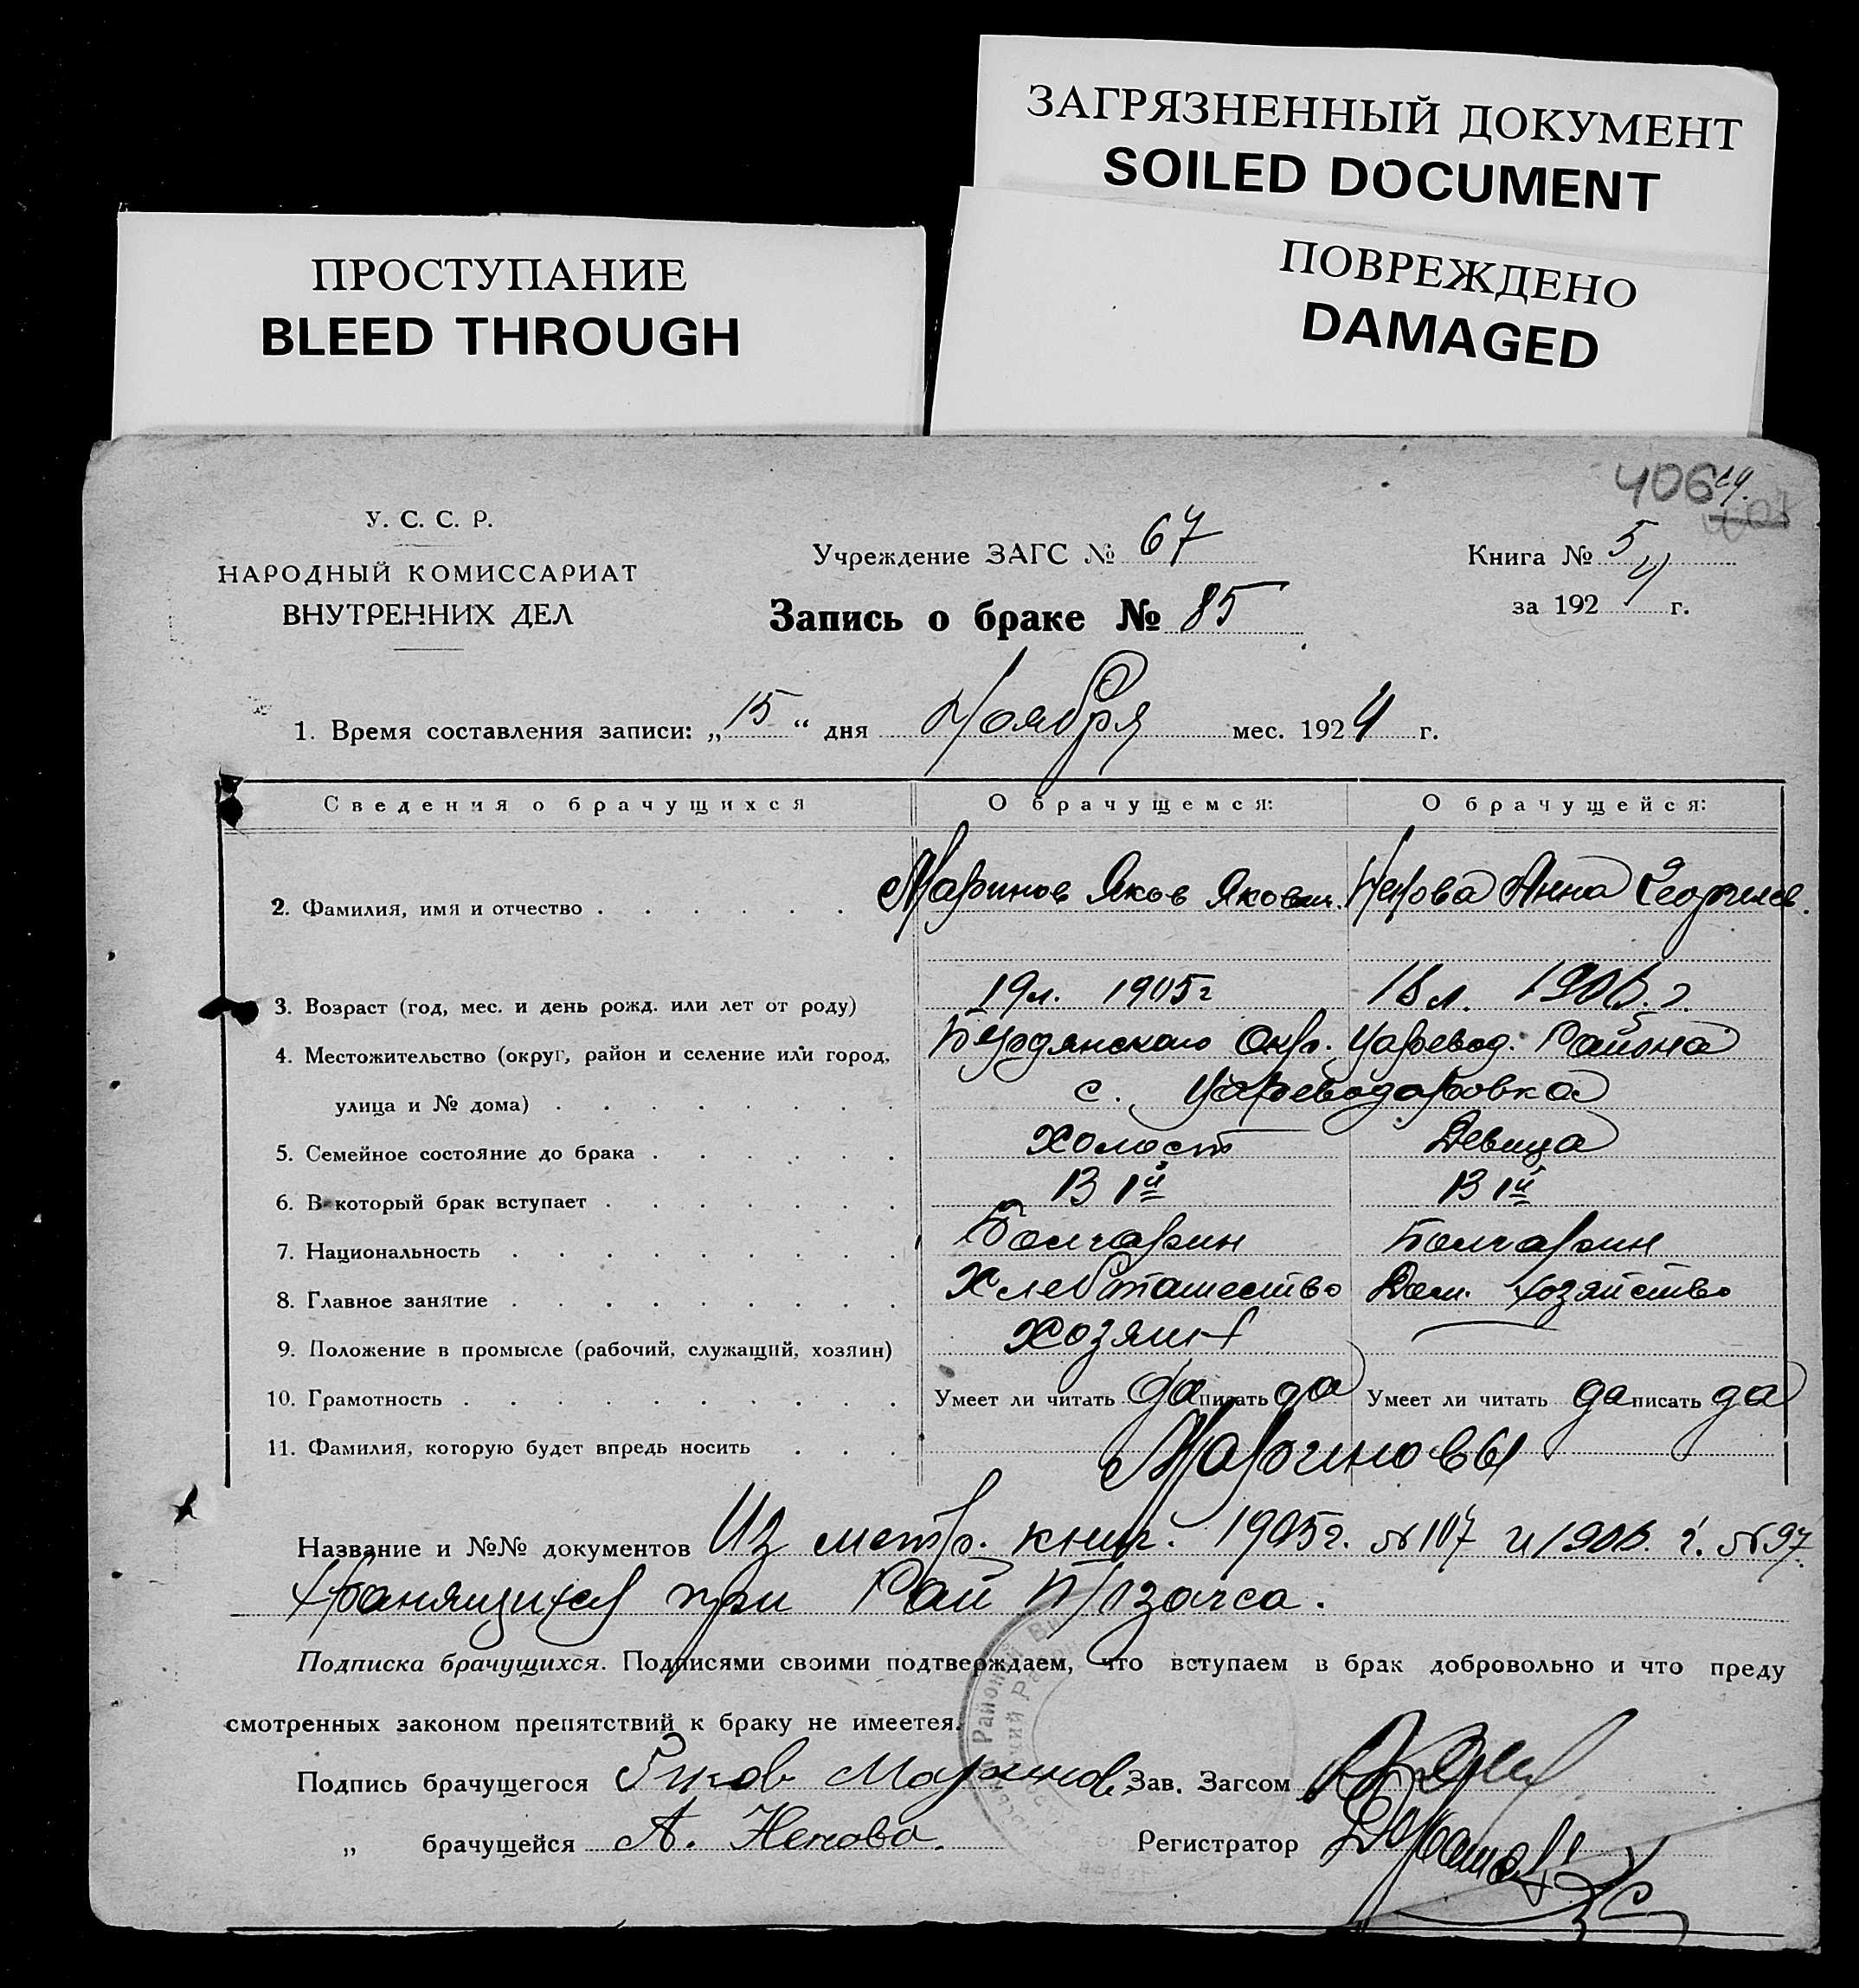 ЗАГРЯЗНЕННЫЙ ДОКУМЕНТ
SOILED DOCUMENT
ПОВРЕЖДЕНО
DAMAGED
ПРОСТУПАНИЕ
BLEED THROUGH
406
У. С. С. Р.
НАРОДНЫЙ КОМИССАРИАТ
ВНУТРЕННИХ ДЕЛ
Учреждение ЗАГС № 67
Запись о браке № 85
Книга № 5
за 1924 г.
1. Время составления записи: „15“ дня Ноября мес. 1924 г.
Сведения о брачущихся О брачущемся: О брачущейся:
2. Фамилия, имя и отчество Маринов Яков Яковл. Анна Георгиев.
3. Возраст (год, мес. и день рожд. или лет от роду) 19 л. 1905 г 18 л. 1906. г.
4. Местожительство (округ, район и селение или город, Бердянского Окр. Царевод. Района
улица и № дома) с. Цареводаровка
5. Семейное состояние до брака Холост Девица
6. В который брак вступает В 1й В 1й
7. Национальность Болгарин Болгарин
8. Главное занятие Хлебопашество Дом. хозяйство
9. Положение в промысле (рабочий, служащий, хозяин) Хозяин
10. Грамотность Умеет ли читать да писать да Умеет ли читать да писать да
11. Фамилия, которую будет впредь носить Мариновы
Название и №№ документов Из метр. книг. 1905 г. № 107 и 1906. г. № 97.
Хранящихся при Рай
Подписка брачущихся. Подписями своими подтверждаем, что вступаем в брак добровольно и что преду
смотренных законом препятствий к браку не имеется.
Подпись брачущегося Яков Маринов Зав. Загсом
„ брачущейся А. Ненова. Регистратор